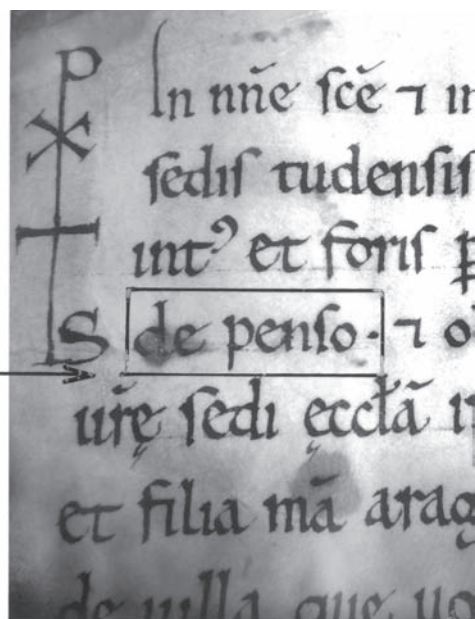 In nñe scẽ ⁊ in
sedis tudensis
int⁹ et foris ꝑ
S de penso · ⁊ o
ur̃ę sedi ęccl̃ã i
et filia mã arag
de uilla que uo